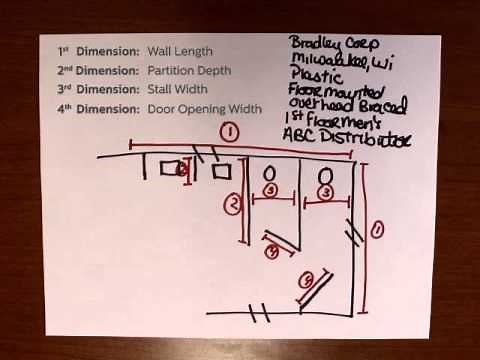 1st Dimension: Wall Length
2nd Dimension: Partition Depth
3rd Dimension: Stall Width
4th Dimension: Door Opening Width
Bradley Corp
Milwaukee, Wi
Plastic
Floor mounted
overhead Braced
1st Floor Men's
ABC Distributor
1
2
3
3
2
1
4